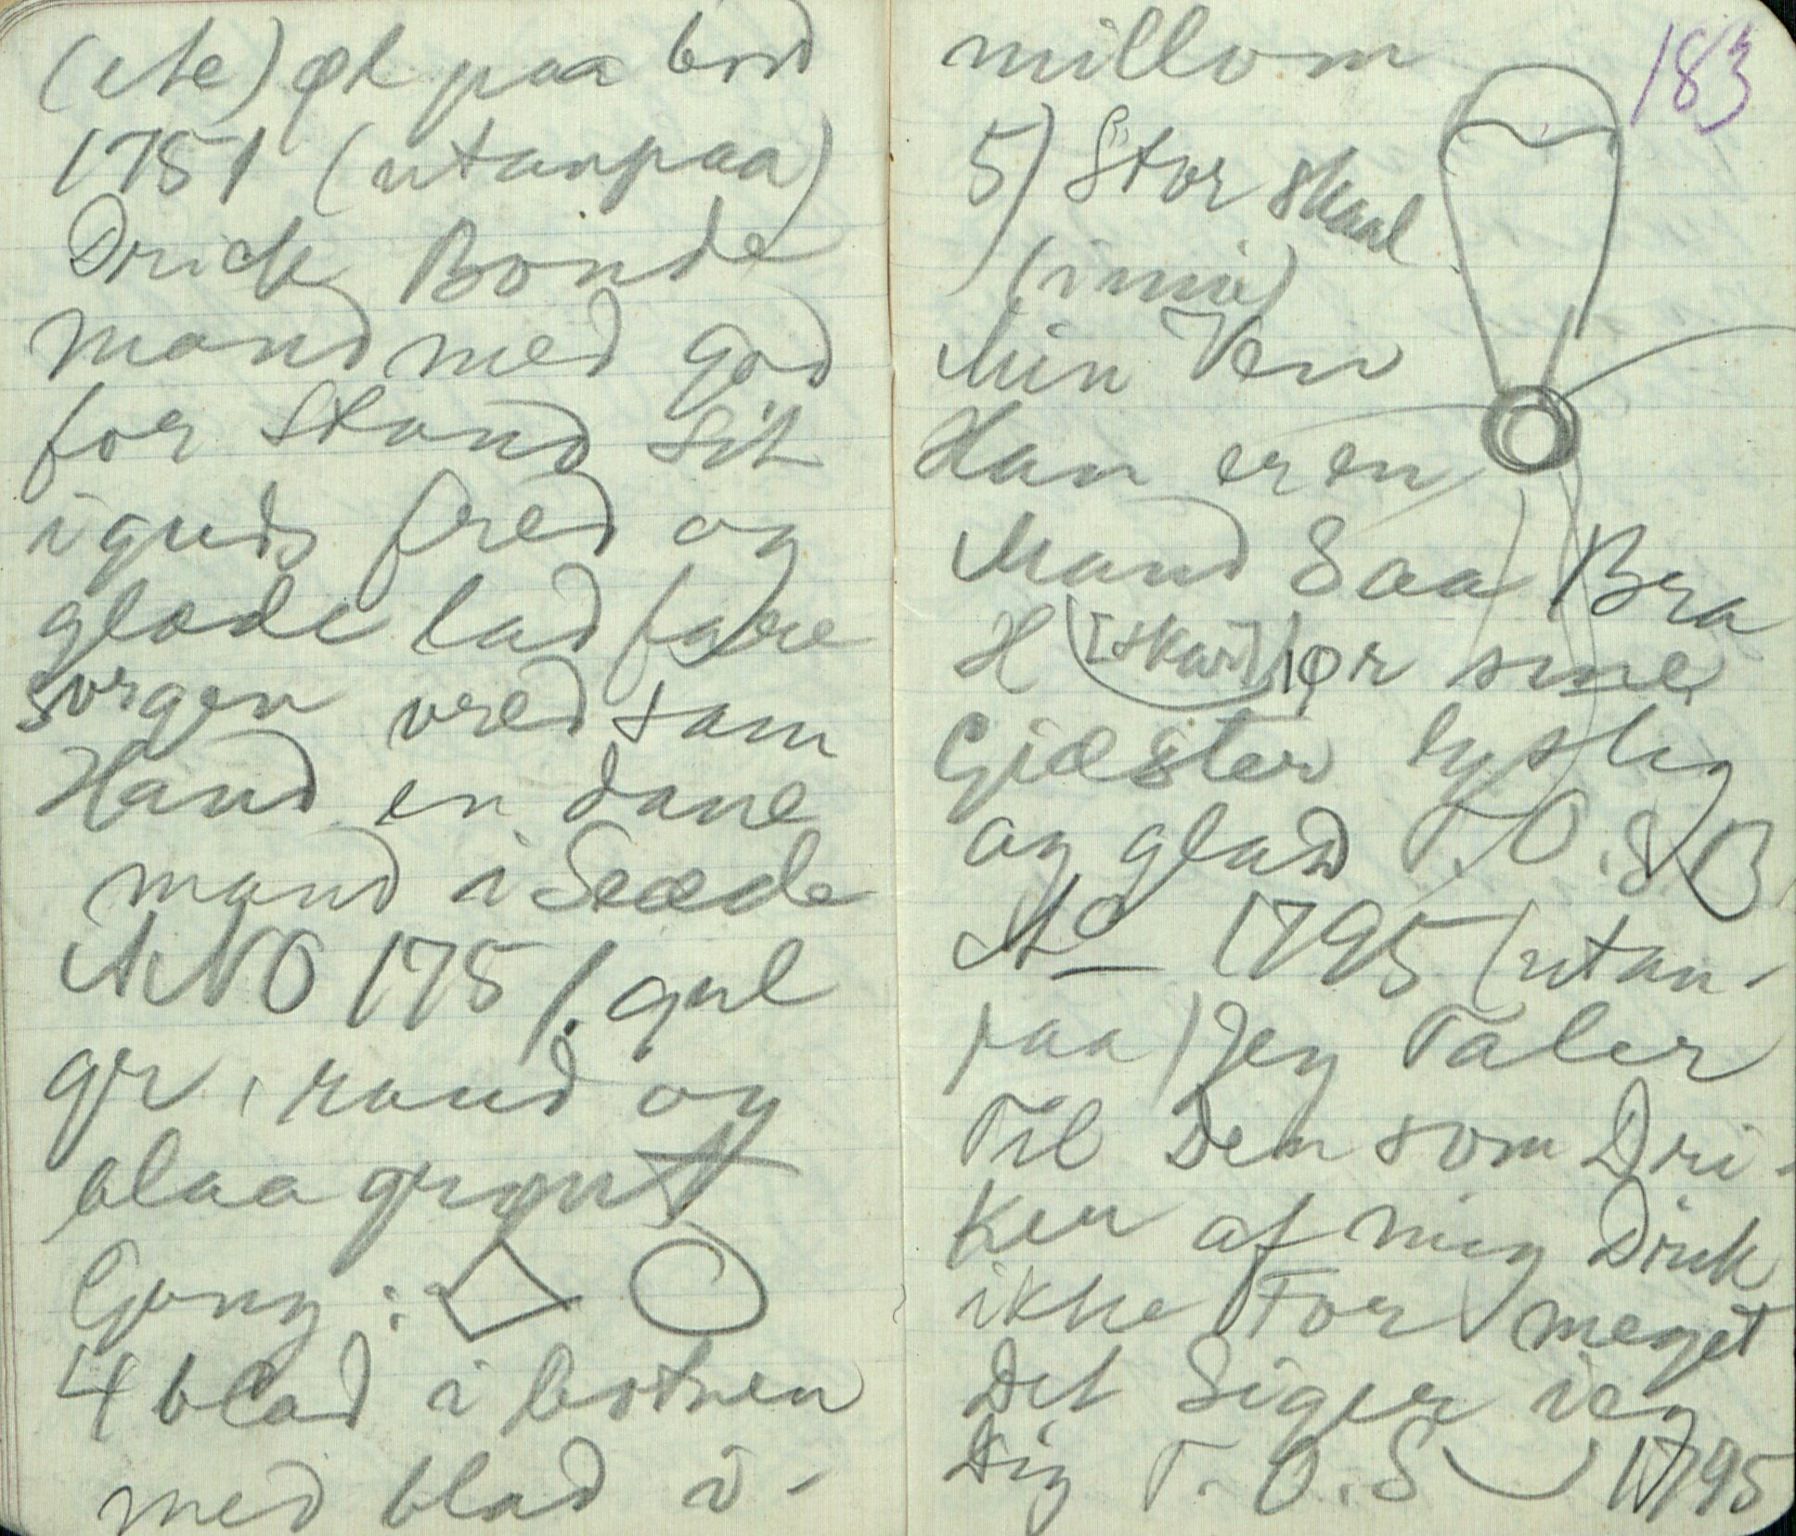 (ute) øl paa bord
1751 (utanpaa)
Drick Bonde
mand med god
for stand sit
i guds fred og
glæde lad fare
sorgen vred som
Hand en dane
mand i Sæde
ANO 1751. gul
gr, raud og
blaagrønt
Gang :
4 blad i botnen
med blad i-
millom
183
5) Stor skaal
(inni)
Min Ven
Han er en
Mand Saa Bra
H [skar] ør sine
Giæster lystig
og glad T.O.S.B.
Ao 1795 (utan-
paa) Jeg Taler
Til Den som Dri-
ker af mig Drik
ikke For meget
Det Siger ieg
Dig T.O.S 1795